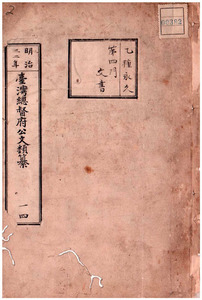 乙種永久
第四門
文書
明治
三二年
臺灣總督府公文類纂
一四